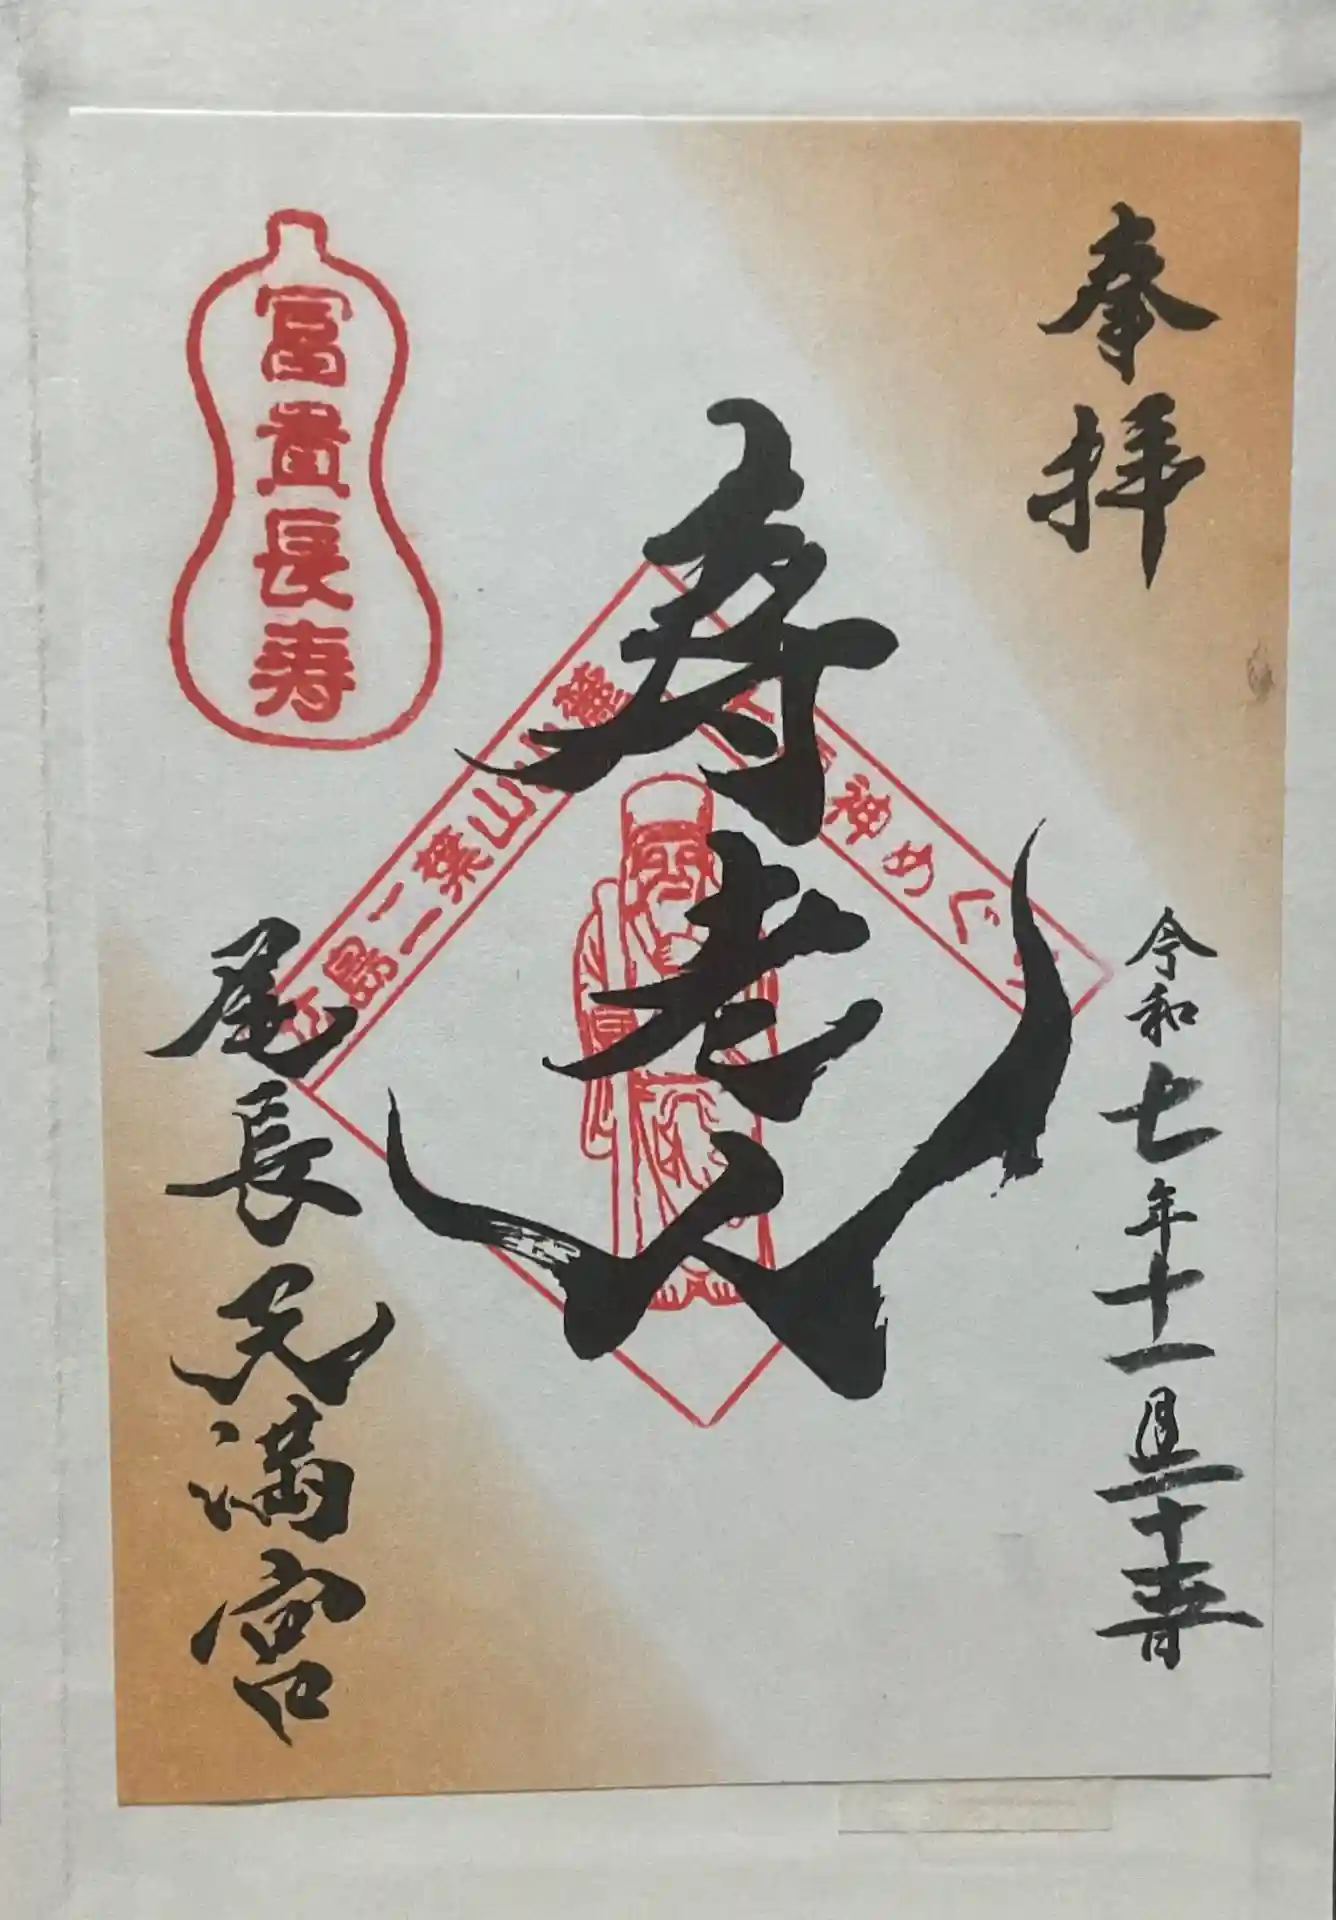 奉拝
令和七年十一月二十三日
寿老人
広島二葉山山麓
福神めぐり
富貴長寿
尾長天満宮